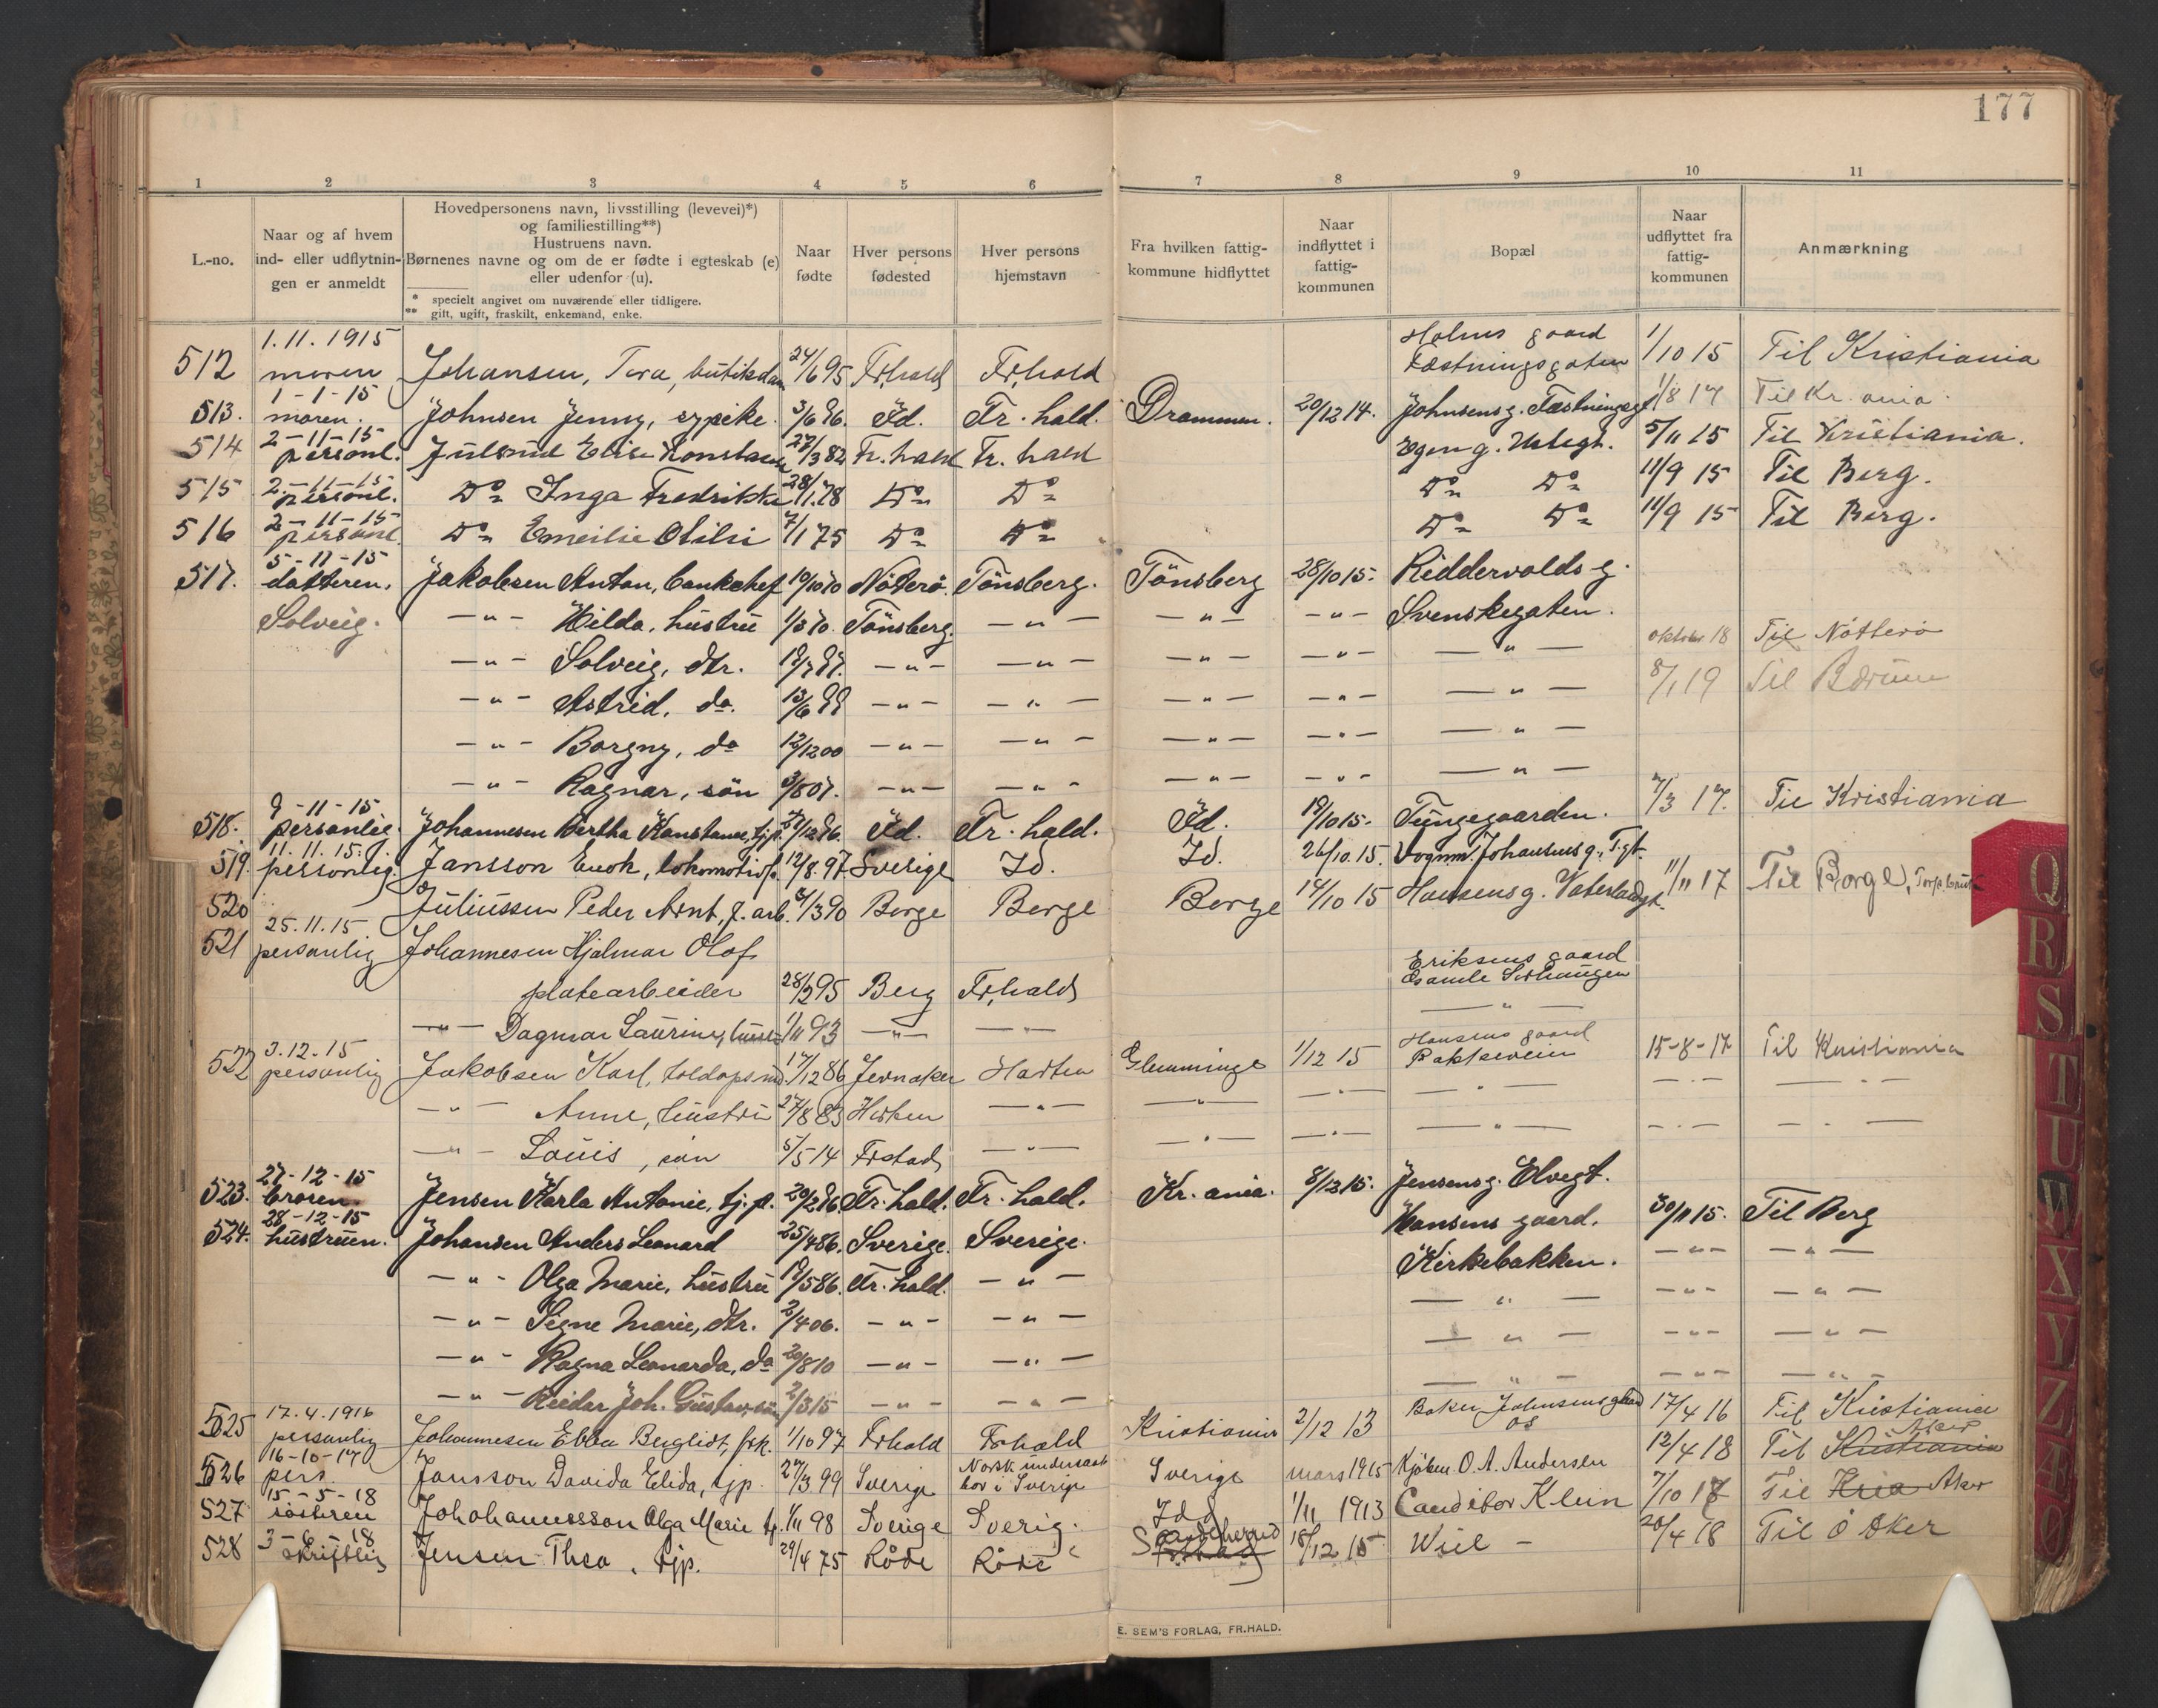 177
1 2 3 4 5 6 7 8 9 10 11
L.-no.
Naar og af hvem
ind- eller udflytnin-
gen er anmeldt
Hovedpersonens navn, livsstilling (levevei)*)
og familiestilling**)
Hustruens navn.
Børnenes navne og om de er fødte i egteskab (e)
eller udenfor (u).
* specielt angivet om nuværende eller tidligere.
** gift, ugift, fraskilt, enkemand, enke.
Naar
fødte
Hver persons
fødested
Hver persons
hjemstavn
Fra hvilken fattig-
kommune hidflyttet
Naar
indflyttet i
fattig-
kommunen
Bopæl
Naar
udflyttet fra
fattig-
kommunen
Anmærkning
1.11.1915 Holms gaard
512 moren Johansen, Tora, butikdam 24/6 95 Frhald Frhald Fæstningsgaten 1/10 15 Til Kristiania
1-1-15
513. moren. Johnsen Jenny, sypike. 3/6 96. Id. Fr. hald. Drammen. 20/12 14. Johnsens g. Fæstningsgt 1/8 17 Til Kr. ania.
2-11-15
514 personl. Julsrud Elise Konstanse 27/3 82 Fr. hald Fr. hald Egen g. 5/11 15 Til Kristiania.
2-11-15
515 personl. Do Inga Fredrikke 28/1.78 Do Do Do Do 11/9 15 Til Berg.
2-11-15
516 personl. Do Emilie Otilie 7/1 75 Do Do Do Do 11/9 15 Til Berg.
5-11-15
517. datteren. Jakobsen Anton, bankchef 10/10 70 Nøtterø. Tönsberg. Tönsberg 28/10 15. Riddervolds g.
Solveig. -"- Hilda, hustru 1/3 70. Tönsberg. -"- -"- -"- Svenskegaten.
-"- Solveig, dtr. 19/7 97. -"- -"- -"- -"- -"- oktober 18 Til Nötterö
-"- Astrid, do. 13/6 99 -"- -"- -"- -"- -"- 8/1 19 Til Bærum
-"- Borgny, do 12/12 00 -"- -"- -"- -"- -"-
-"- Ragnar, sön 3/8 07. -"- -"- -"- -"- -"-
9-11-15
518. personlig. Johannesen Bertha Konstanse, tjp. 27/12 96. Id. Fr. hald. Id. 19/10 15. Tungegaarden. 7/3 17. Til Kristiania
11.11.15.
519. personlig. Jansson Enok, lokomotivf. 12/8.97 Sverige Id. Id. 26/10.15. Vognm. Johansens g., Tgt.
520 Juliussen Peder Arnt, f. arb. 4/3 90 Borge Borge Borge 14/10 15 Hansens g. Vaterlandgt. 11/11 17 Til Borge, Torp bruk
25.11.15
521 personlig Johannesen Hjalmar Olof Eriksens gaard
platearbeider 28/2 95 Berg Frhald Gamle Sorhaugen
-"- Dagmar Laurine, hustru 1/11 93 -"- -"- -"-
3.12.15 Hansens gaard
522 personlig Jakobsen Karl, toldopsm. 17/12 86 Jevnaker Glemminge 1/12 15 Bakkeveien 15-8-17 Til Kristiania
-"- Anne, hustru 27/8 83 -"- -"- -"- -"- -"- -"-
-"- Louis, sön 5/5 14 Frstad -"- -"- -"- -"- -"- -"-
27-12-15
523. broren. Jensen Karla Antonie, tj. p. 20/2 96. Fr. hald. Fr. hald. Kr. ania. 8/12 15. Jensens g. Elvegt.
28-12-15
524. hustruen. Johansen Anders Leonard 25/4 86. Sverige. Sverige. Hansens gaard. 30/11 15. Til Berg
-"- Olga Marie, hustru 19/5 86. Fr. hald. -"- Kirkebakken. -"- -"-
-"- Signe Marie, dtr. 2/4 06. -"- -"- -"- -"- -"-
-"- Ragna Leonarda, do 20/8 10 -"- -"- -"- -"- -"-
-"- Reidar Joh. Gustav, sön 2/3 15 -"- -"- -"- -"- -"-
17.4.1916
525 personlig Johannesen Ebba Bergliot, frk. 1/10 97 Frhald Frhald Kristiania 2/12 13 Baker Johnsens gaard 17/4 16 Til Kristiania
os
16-10-17 Aker
526 pers. Jansson Davida Elida, tjp. 27/3 99 Sverige Norsk undersaat bor i Sverige Sverige mars 1915 Kjöbm. O. A. Andersen 12/4 18 Til Kristiania
15-5-18
527 søsteren Johohannesson Olga Marie tj. 1/11 98 Sverige Sverig. Idd 1/11 1913 Klein 7/10 17 Til Kria Aker
3-6-18
528 skriftlig Jensen Thea, tjp. 29/4 75 Råde Råde 18/12 15 Wiel - 20/4 18 Til Ö Aker
E. SEM'S FORLAG, FR.HALD.
Q
R
S
T
U
W
X
Y
Z
Æ
Ø